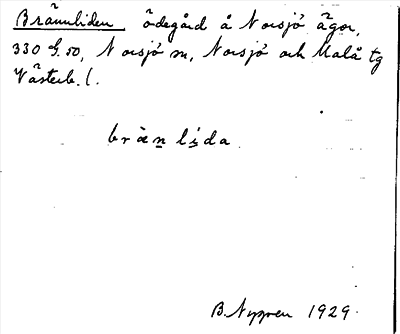 Brännliden ödegård å Norsjö ägor,
330 G. 50, Norsjö sn, Norsjö och Malå tg
Västerb. l.
bränlida
B. Nygren 1929.